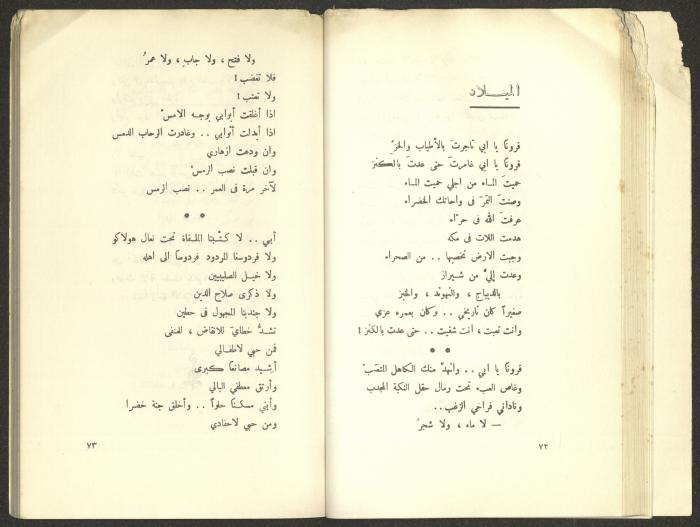 الميلاد
قرونًا يا ابي تاجرتَ بالأطياب والخزّ
قرونًا يا ابي غامرتَ حتى عدتَ بالكنز
حميتَ الماء من اجلي حميت الماء
وصنتَ التمرَ في واحاتك الخضراء
عرفتَ الله في حرّاء
هدمت اللات في مكه
وجبت الارض تخصبها .. من الصحراء
وعدت إليّ من شيراز
بالديباج ، والنهوند ، والخبز
صغيراً كان تاريخي .. وكان بعمره عزي
وانت تعبت ، أنت شقيت .. حتى عدت بالكنز !
• •
قرونًا يا ابي .. وانهدَّ منك الكاهل المتعَبْ
وغاص العبء تحت رمال حقل النكبة المجدب
وناداني فراخي الزغب..
— لا ماء ، ولا شجرُ
٧٢
ولا فتح ، ولا جاب ، ولا عمرُ
فلا تغضب !
ولا تعتب !
اذا أغلقت أبوابي بوجه الامسْ
اذا أبدلت أثوابي .. وغادرت الرحاب الدمس
وان ودعت ازهاري
وان قبلت نصب الرمسْ
لآخر مرة في العمر .. نصب الرمس
• •
أبي .. لا كتْبنا الملقاة تحت نعال هولاكو
ولا فردوسنا المردود فردوسًا الى اهله
ولا خيل الصليبيين
ولا ذكرى صلاح الدين
ولا جنديّنا المجهول في حطين
تشدُّ خطايَ للانقاض ، للمنفى
فمن حبي لاطفالي
أشيد مصانعًا كبرى
وأرتق معطفي البالي
وأبني مسكنًا حلواً .. وأخلق جنة خضرا
ومن حبي لاحفادي
٧٣